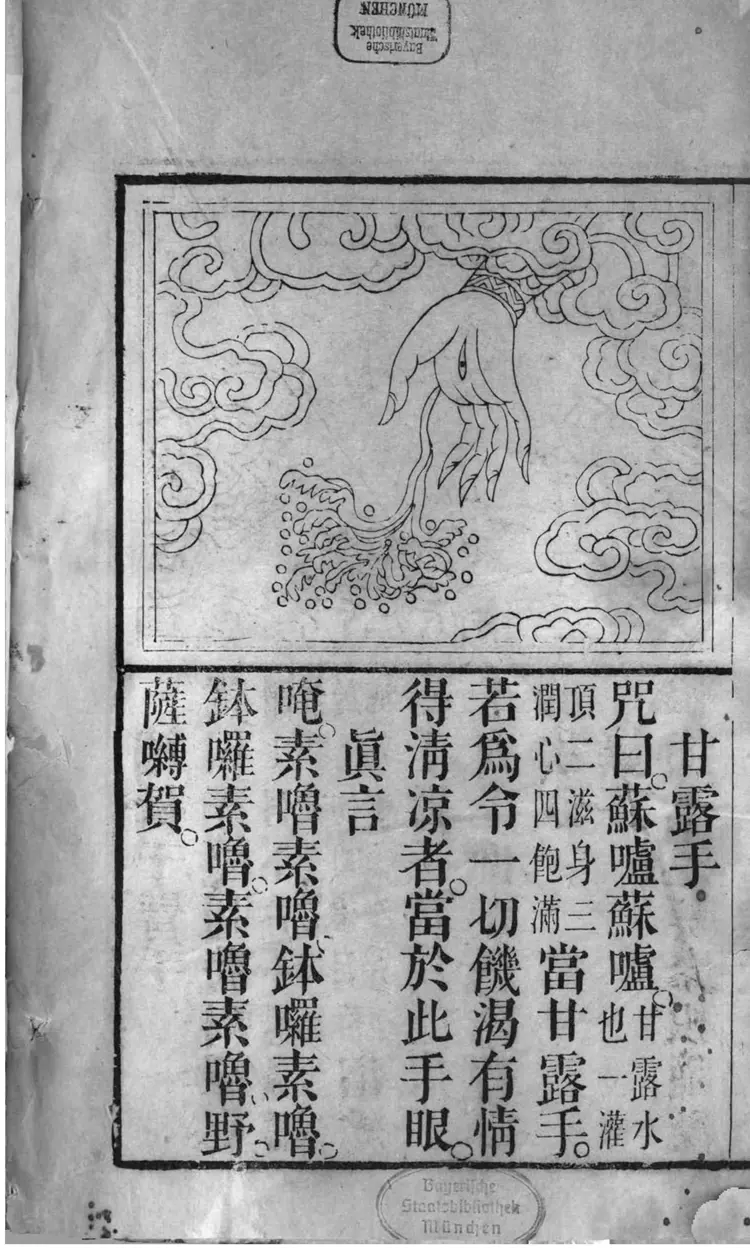 Bayerische
Staatsbibliothek
MÜNCHEN
甘露手
咒曰。蘇嚧蘇嚧。甘露水也一灌
頂二滋身三潤心四飽滿當甘露手。
若爲令一切饑渴有情
得清凉者。當於此手眼。
眞言
唵。素嚕素嚕。鉢囉素嚕。
鉢囉素嚕。素嚕素嚕。野。
薩嚩賀。
Bayerische
Staatsbibliothek
München